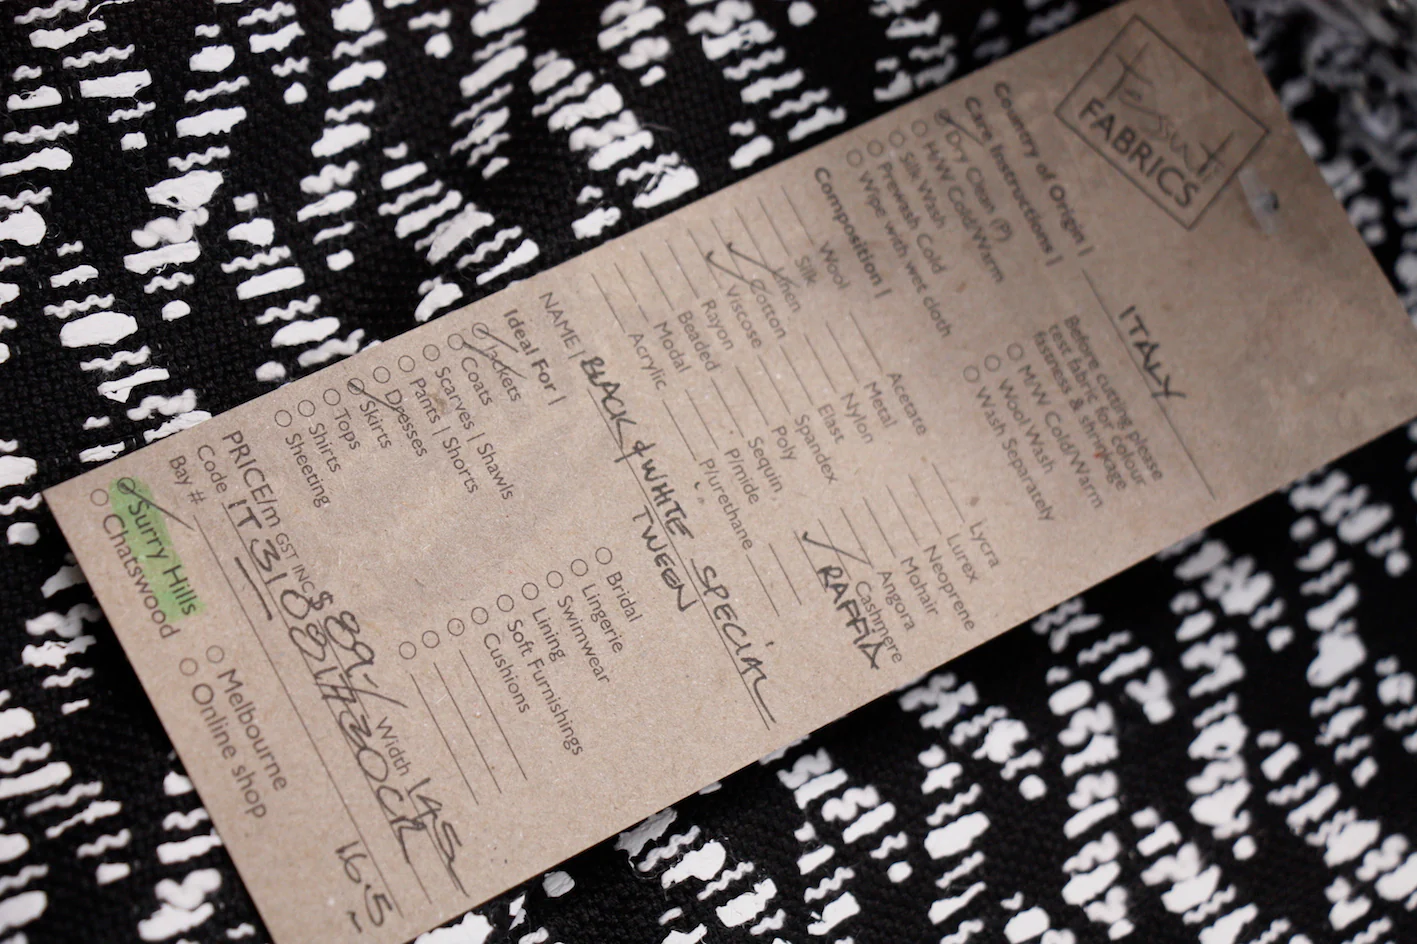 Tessuti
FABRICS
Country of Origin | ITALY
Care Instructions |
Before cutting please
test fabric for colour
fastness & shrinkage
Dry Clean (P)
H/W Cold/Warm
Silk Wash
Prewash Cold
Wipe with wet cloth
M/W Cold/Warm
Wool Wash
Wash Separately
Composition |
Wool
Silk
Linen
Cotton
Viscose
Rayon
Beaded
Modal
Acrylic
Acetate
Metal
Nylon
Elast
Spandex
Poly
Sequin
P/mide
P/urethane
Lycra
Lurex
Neoprene
Mohair
Angora
Cashmere
RAFFIA
NAME | BLACK & WHITE SPECIAL
TWEEN
Ideal For |
Jackets
Coats
Scarves | Shawls
Pants | Shorts
Dresses
Skirts
Tops
Shirts
Sheeting
Bridal
Lingerie
Swimwear
Lining
Soft Furnishings
Cushions
PRICE/m GST INC $89-/ Width 145
Code
Bay # 16.5
Surry Hills
Chatswood
Melbourne
Online shop